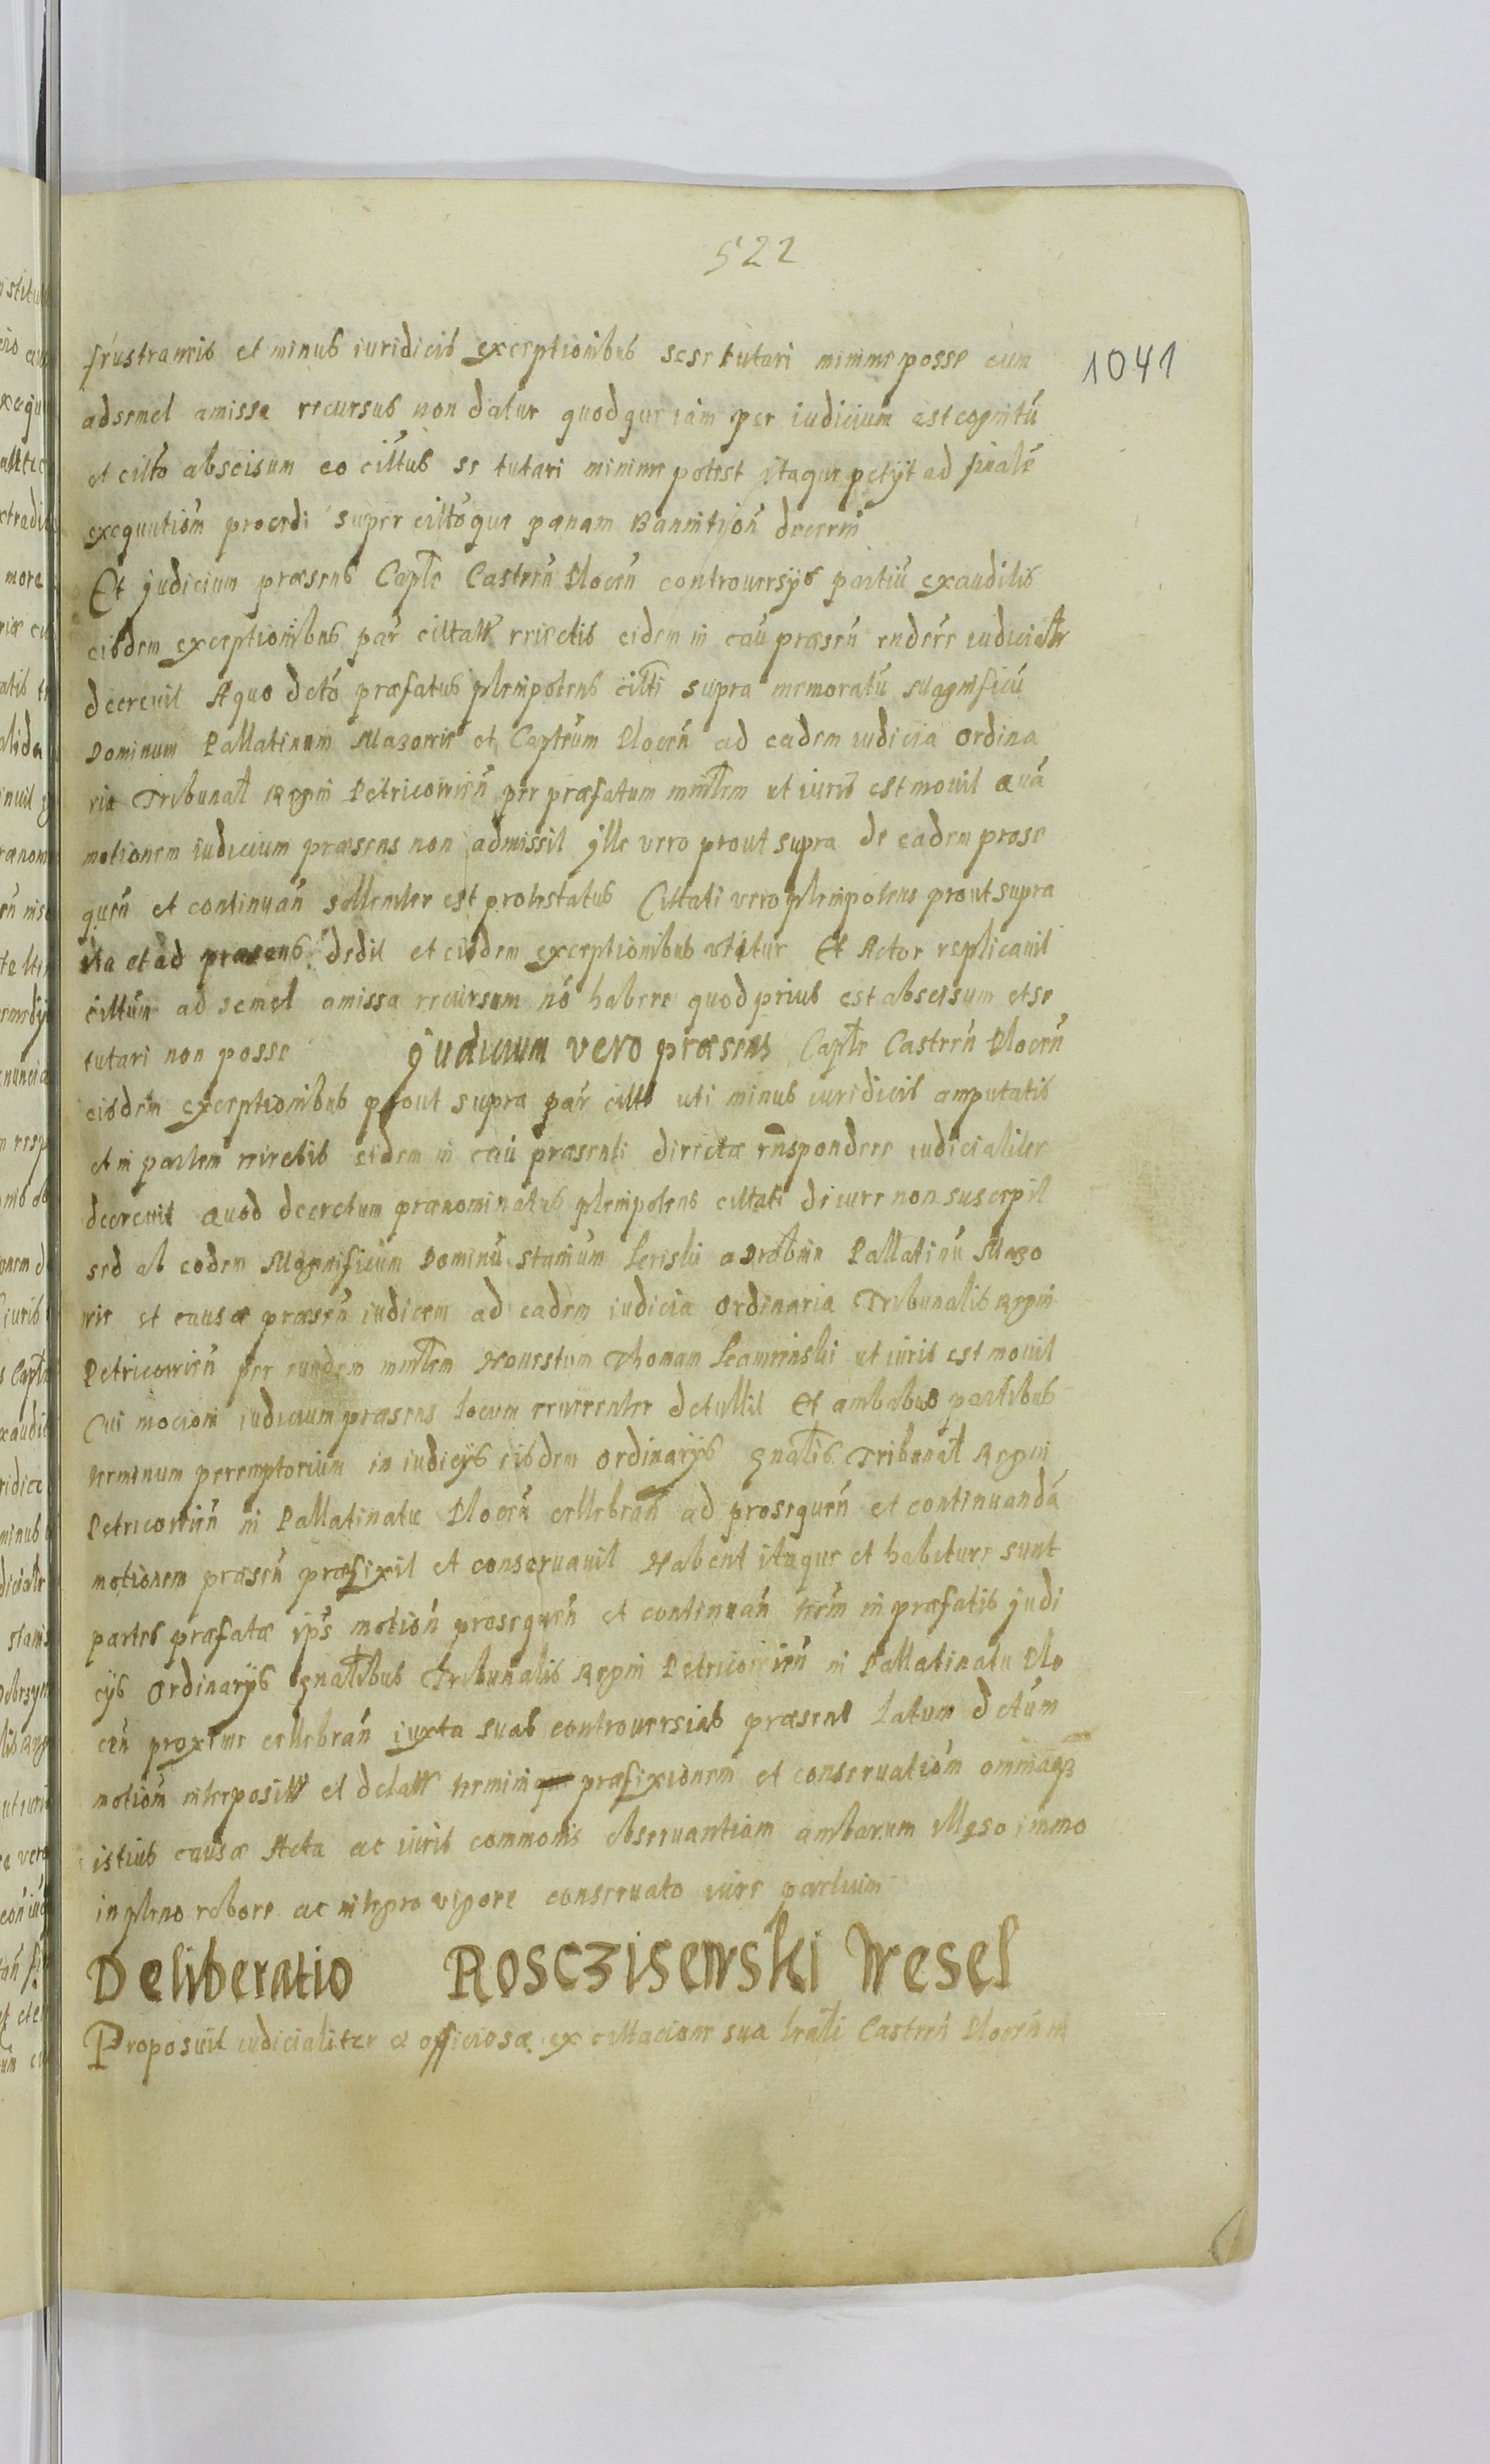 522
1041
frustraneis et minus iuridicis exceptionibus sese tutari minime posse cum
ad semel amissa recursus non datur quodque iam per iudicium est cognitū
et cittō abscisum eo cittus se tutari minime potest ytaque petyt ad finalē
exequutiōm procedi super cittōque pœnam Bannitiōn decerni
Et judicium præsens Capłe Castreń Ploceń controuersys partiū exauditis
eisdem exceptionibus par cittati reiectis eidem in caū præseń rndere iudicialr
decreuit A quo dctō præfatus plenipotens citti supra memoratū Magnificū
Dominum Pallatinum Mazowie et Captēum Ploceń ad eadem iudicia ordina
ria Tribunal Regni Petricouień per præfatum mnłrem ut iuris est mouit quā
motionem iudicium præsens non admissit ylle vero prout supra de eadem prose
queń et continuań sollemter est protestatus Cittati vero plenipotens prout supra
ita et ad præsens dedit et eisdem exceptionibus utitur Et Actor replicauit
cittum ad semel amissa recursum nō habere quod prius est abscisum et se
tutari non posse judicium vero præsens Capłe Castreń Ploceń
eisdem exceptionibus prout supra par citti uti minus iuridicis amputatis
et in partem reiectis eidem in caū præsenti directæ rnspondere iudicialiter
decreuit quod decretum prænominatus plenipotens cittati de iure non suscepit
sed ab eodem Magnificum Dominū Stanūm Pallatinū Mazo
wie et causæ præseń iudicem ad eadem iudicia ordinaria Tribunalis Regni
Petricouień per eundem mnłrem Honestum Thomam ut iuris est mouit
Cui mocioni iudicium præsens locum reuerenter detullit Et ambabus partibus
terminum peremptorium in iudicys eisdem ordinarys gnałis Tribunal Regni
Petricouień in Pallatinatu Ploceń cellebrań ad prosequeń et continuandā
motionem præseń præfixit et conseruauit Habent itaque et habiture sunt
partes præfatæ ips motiōn prosequeń et continuań trm in præfatis judi
cys ordinarys gnałibus Tribunalis Regni Petricouień in Pallatinatu Plo
ceń proxime cellebrań iuxta suas controuersias præsens latum dctūm
motiōm interpositæ et delatæ termini præfixionem et conseruatiōm omniaqз
istius causæ Acta ac iuris commonis obseruantiam ambarum
in pleno robore ac integro vigore conseruato iure partium
Deliberatio Rosczisewski Wesel
Proposuit iudicialiter et officiosæ ex cittacione sua lrali Castreń Ploceń in